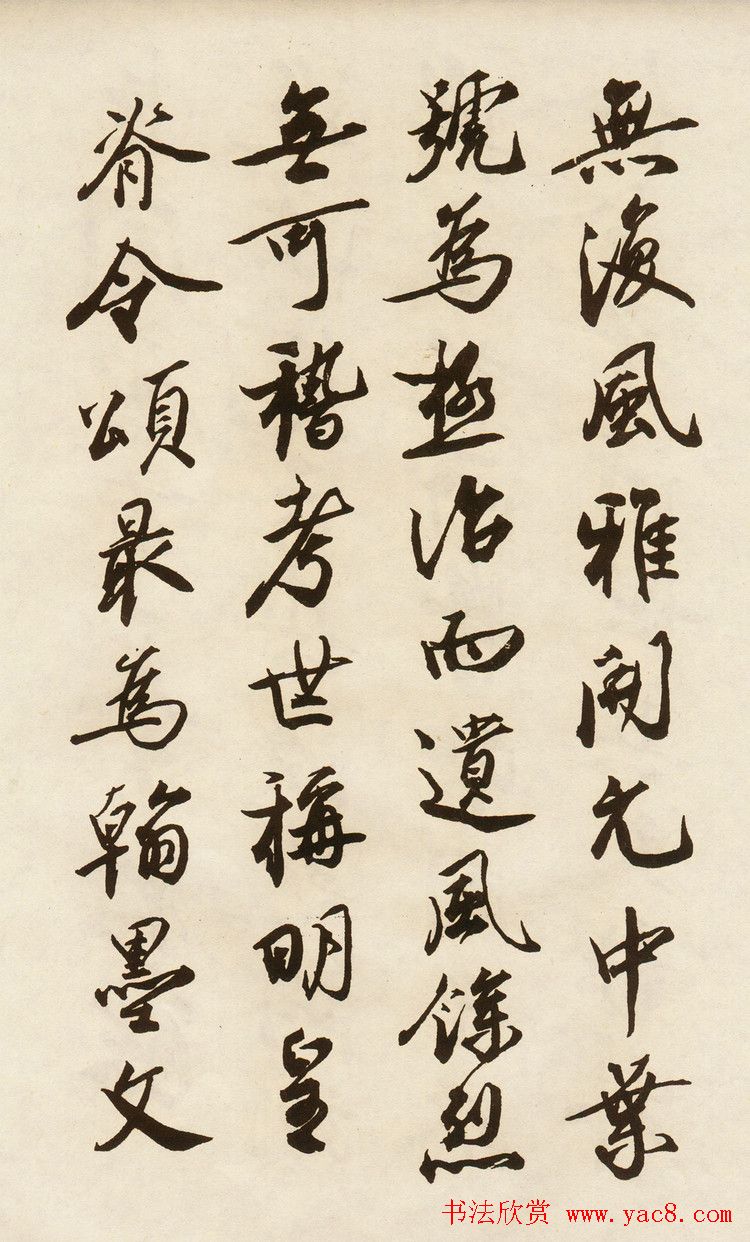 無海風雅開元中葉
號為極治而遺風餘烈
無可稽考世稱明皇
脊令頌最為翰墨文
书法欣赏 www.yac8.com